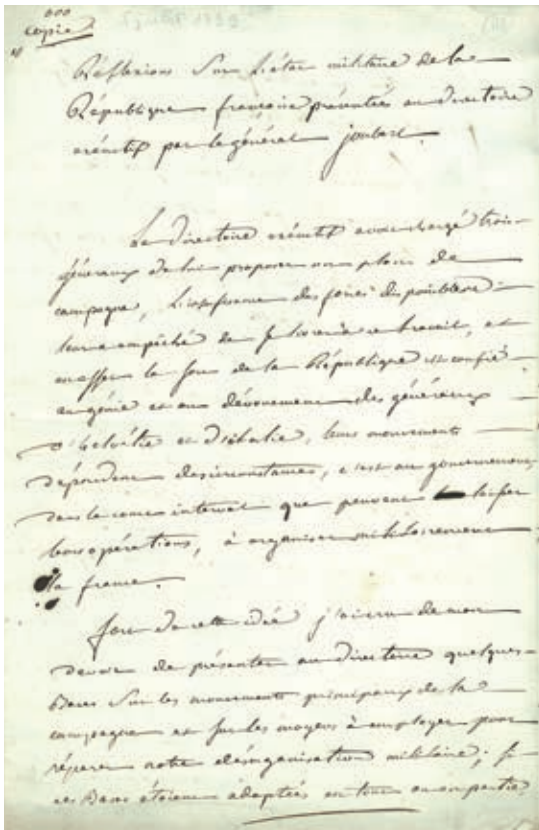 copie
Réflexions Sur l'état militaire de la
République francaise présentées au directoire
exécutif par le général joubert.
Le directoire exécutif avoit chargé trois
généraux de lui proposer un plan de
campagne, L'insuffisance des forces disponibles
leur a empêché de se livrer à ce travail, et
en effet le sort de la République est confié
au génie et au dévouement des généraux
d'helvétie et d'italie, leurs mouvements
dépendent des circonstances, c'est au gouvernement
dans le court interval que peuvent laisser
leurs opérations, à organiser militairement
la france.
fort de cette idée j'ai cru de mon
devoir de présenter au directoire quelques
Bases Sur les mouvements principaux de la
campagne et sur les moyens à employer pour
réparer notre désorganisation militaire; si
ces Bases étoient adoptées en tout ou en partie